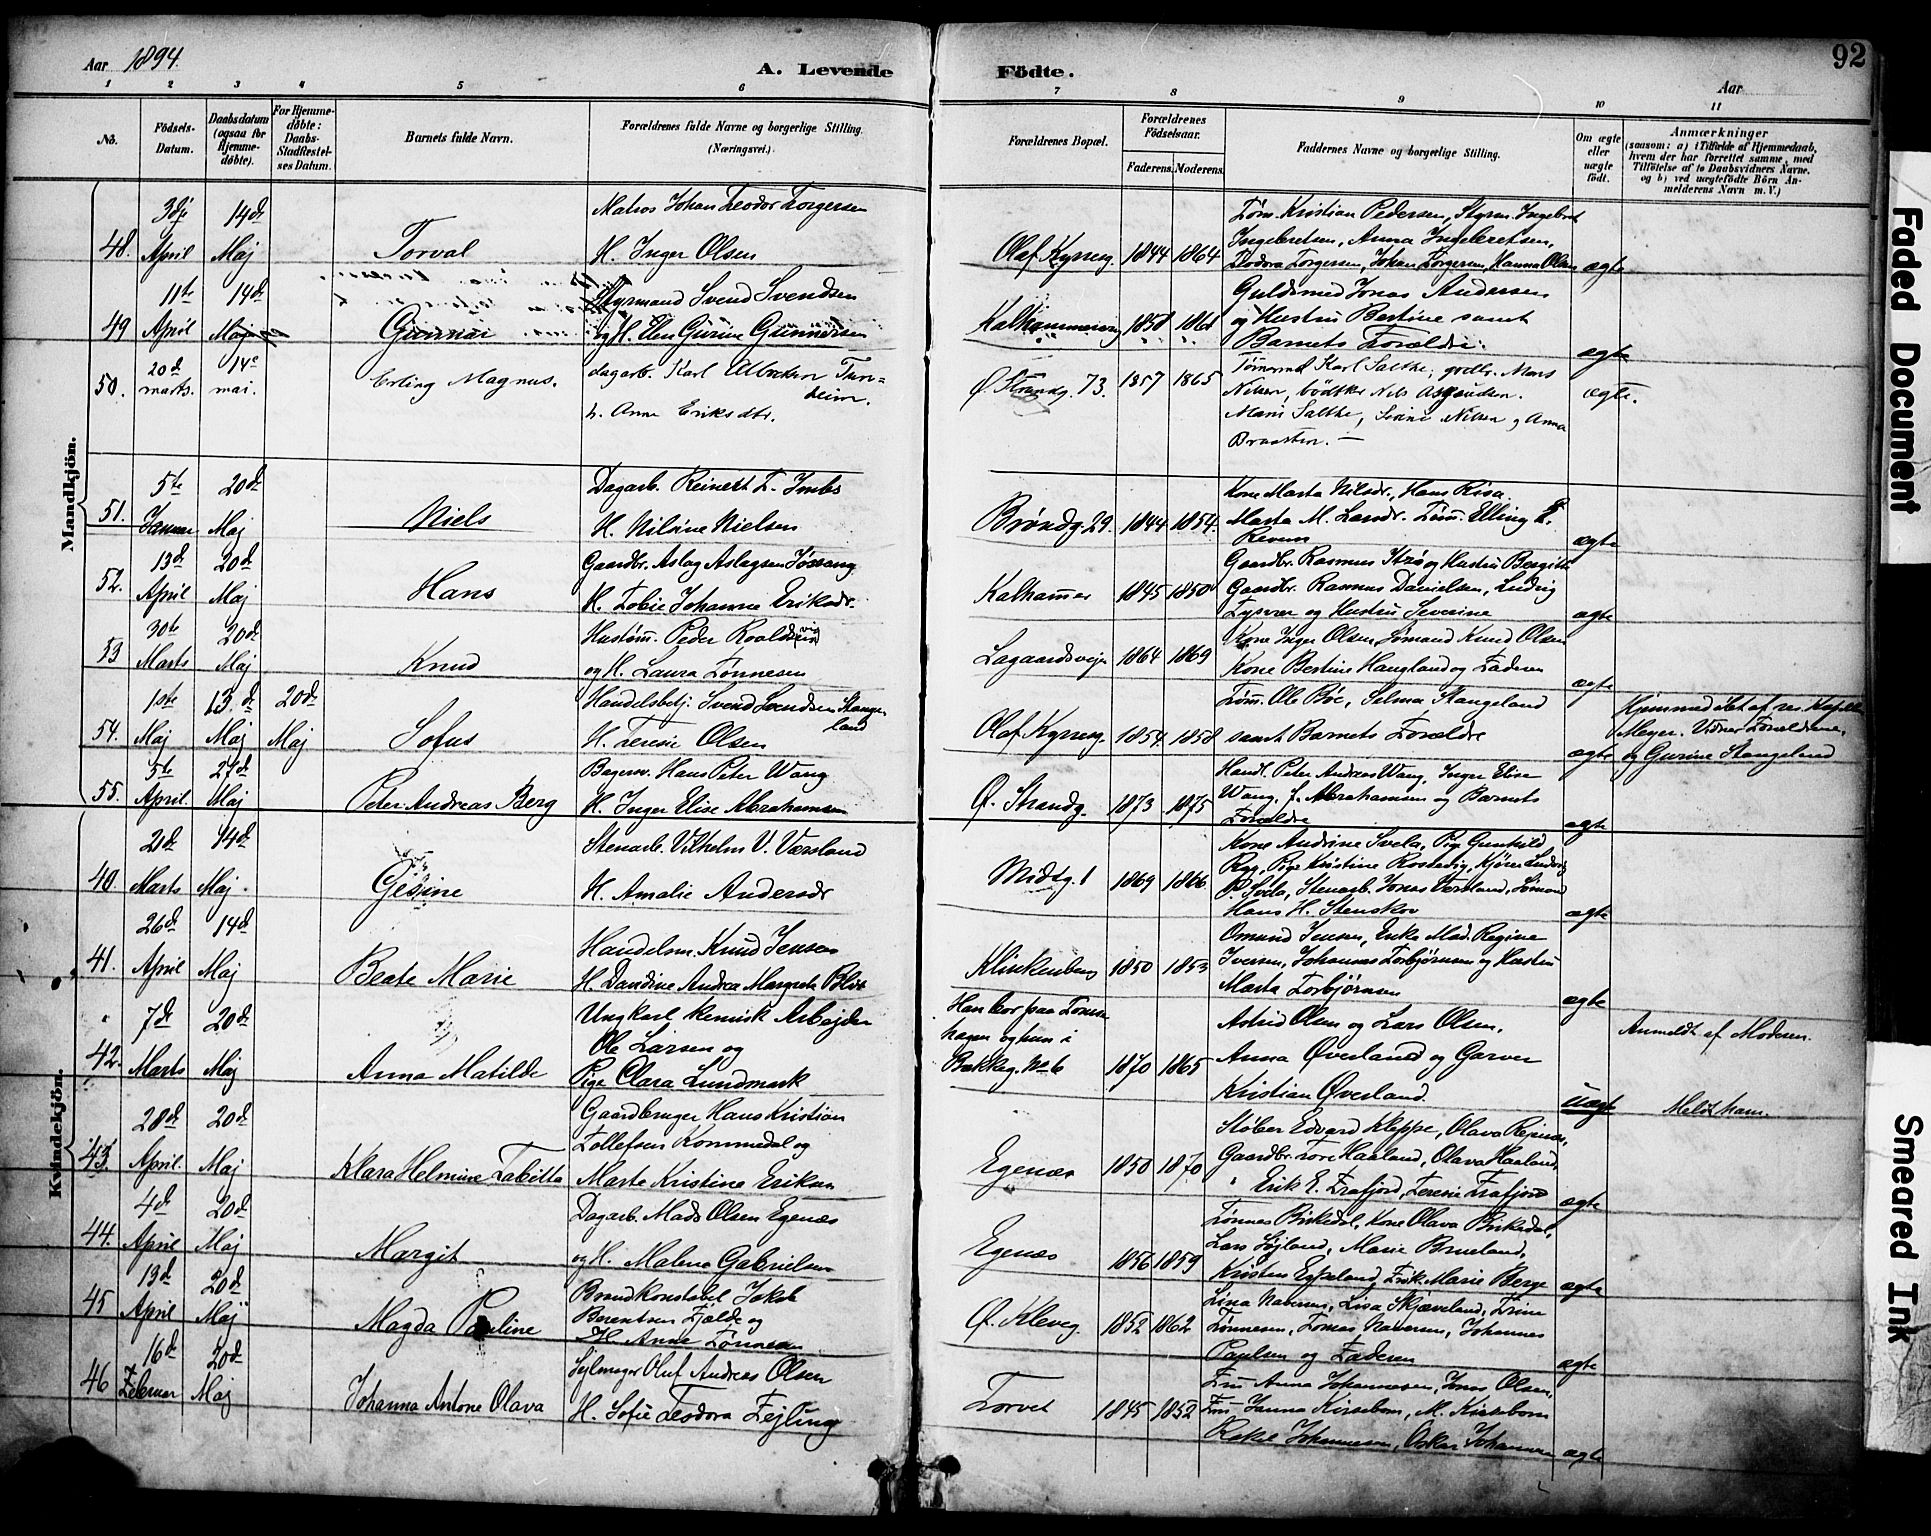 Aar 1894.
A. Levende Födte.
Aar
92
1 2 3 4 5 6 7 8 9 10 11
No.
Födsels-Datum.
Daabsdatum (ogsaa for Hjemme-döbte).
For Hjemme-döbte: Daabs-Stadfæstel-ses Datum.
Barnets fulde Navn.
Forældrenes fulde Navne og borgerlige Stilling.
(Næringsvei.)
Forældrenes Bopæl.
Forældrenes Födselsaar.
Faderens. Moderens.
Faddernes Navne og borgerlige Stilling.
Om ægte eller uægte födt.
Anmærkninger
(saasom: a) i Tilfælde af Hjemmedaab, hvem der har forrettet samme, med Tilföielse af to Daabsvidners Navne. og b) ved uægtefödte Börn An-melderens Navn m. V.)
Mandkjön.
48. 3dje April 14de Maj Torval
Matros Johan Teodor Torgersen
H. Inger Olsen
Olaf Kyrresg. 1844 1864
Tøm. Kristian Pedersen, Styrm. Ingebret
Ingebretsen, Anna Ingebretsen,
Teodora Torgersen, Johan Torgersen, Hanna Olsen ægte
49 11te April 14de Maj Gunnar
Styrmand Svend Svendsen
og H. Elen Gurine Gunnarsen
Kalhammervg 1858 1861
Guldsmed Jonas Andersen
og Hustru Bertine samt
Barnets Forældre. ægte
50. 20d marts. 14e mai. Erling Magnus.
dagarb. Karl
h. Anne Eriksdtr.
Ø. Strandg. 73. 1857 1865
Tømmermd Karl Salthe, Mars
Nilsen, bödtker Nils
Marie Salthe, Nilsen og Anna
Braasten. — ægte.
51. 5te Januar 20de Maj Niels
Dagarb. Reinert T. Imbs
H. Nilsine Nielsen
Brøndg. 29. 1844 1854.
Kone Marta Nilsdr., Hans Risa.
Marta M. Tøm. Elling
ægte
52. 13d April 20de Maj Hans
Gaardbr. Aslag Aslagsen Jøssang
H. Tobie Johanne Eriksdr.
Kalhammer 1845 1850
Gaardbr. Rasmus og Hustru Bergitte
Gaardbr. Rasmus Danielsen, Ludvig
Tysvær og Hustru Severine ægte
53 30te Marts 20de Maj Knud
Hustøm. Peder Roaldsen
og H. Laura Tønnesen
Lagaardsvejen 1864 1869
Kone Inger Olsen, Sømand Knud Olsen
Kone Bertine Haugland og Faderen ægte
54. 1ste Maj 13.de Maj 20de Maj Sofus
Handelsbetj. Svend Svendsen Stangeland
H. Teresie Olsen
Olaf Kyrresg. 1854. 1858
Tøm. Ole Bøe, Selma Stangeland
samt Barnets Forældre ægte
Hjemmedøbt af res. Kapellan
Meyer. Vidner Forældrene,
og Gurine Stangeland
55. 5te April 27de Maj Peter Andreas Berg
Bagersv. Hans Peter Wang
H. Inger Elise Abrahamsen
Ø. Strandg. 1873 1875
Handl. Peter Andreas Wang, Inger Elise
Wang, J. Abrahamsen og Barnets
Forældre ægte
Kvindekjön.
40. 21de Marts 14de Maj. Gesine
Stenarb. Vilhelm V. Værsland
H. Amalie Andersdr
Midtsg. 1 1869 1866
Kone Andrine Svela, Pige Gunhild
Ryg, Pige Kristine Kjører Ludvig
P. Svela, Stenarb. Jonas Værsland, Sømand
Hans H. Stenskov ægte
41. 26de April 14de Maj Beate Marie
Handelsm. Knud Jensen
H. Dandine Andrea Margrete Blix
Klinkenberg 1850 1853
Omund Jensen, Enke Mad. Regine
Iversen, Johannes Torbjørnsen og Hustru
Marta Torbjørnsen ægte
42. 7de Marts 20de Maj Anna Matilde
Ungkarl kemisk Arbejder
Ole Larsen og
Pige Clara Lundmark
Han bor paa
hagen og hun i
Bakkeg. No 6 1870 1865
Astrid Olsen og Lars Olsen.
Anna Øverland og Garver
Kristian Øverland. uægte
Anmeldt af Moderen.
Meldt ham.
43. 28de April. 20de Maj Klara Helmine Tabitta
Gaardbruger Hans Kristian
Tollefsen Kommedal og
Marte Kristine Eriksen
Egenæs 1850 1870
Støber Edvard Kleppe, Olava
Gaardbr. Tore Haaland, Olava Haaland,
" Erik E. Frafjord, Teresie Frafjord ægte
44. 4de April 20de Maj Margit
Dagarb. Mads Olsen Egenæs
og H. Malena Gabrielsen
Egenæs 1856 1859
Tønnes Birkedal, Kone Olava Birkedal,
Lars Marie Brueland,
Kristen Espeland, Frk. Marie Berge ægte
45 13d April 20de Maj Magda Pauline
Brandkonstabel Jakob
Berentsen Fjelde og
H. Anne Tønnesen
Ø. Kleveg. 1852 1862
Lina Naversen, Lisa Skjæveland, Trine
Tønnesen, Tomas Naversen, Johannes
Paulsen og Faderen ægte
46 16de Februar 20de Maj Johanna Antone Olava
Sejlmager Oluf Andreas Olsen
H. Sofie Teodora Fejling
Torvet 1845 1852
Fru Anna Johannesen, Jonas Olsen,
Fru Janna Kirsebom, M. Kirsebom
Rakel Johannesen, Oskar Johannesen ægte
Faded Document
Smeared Ink